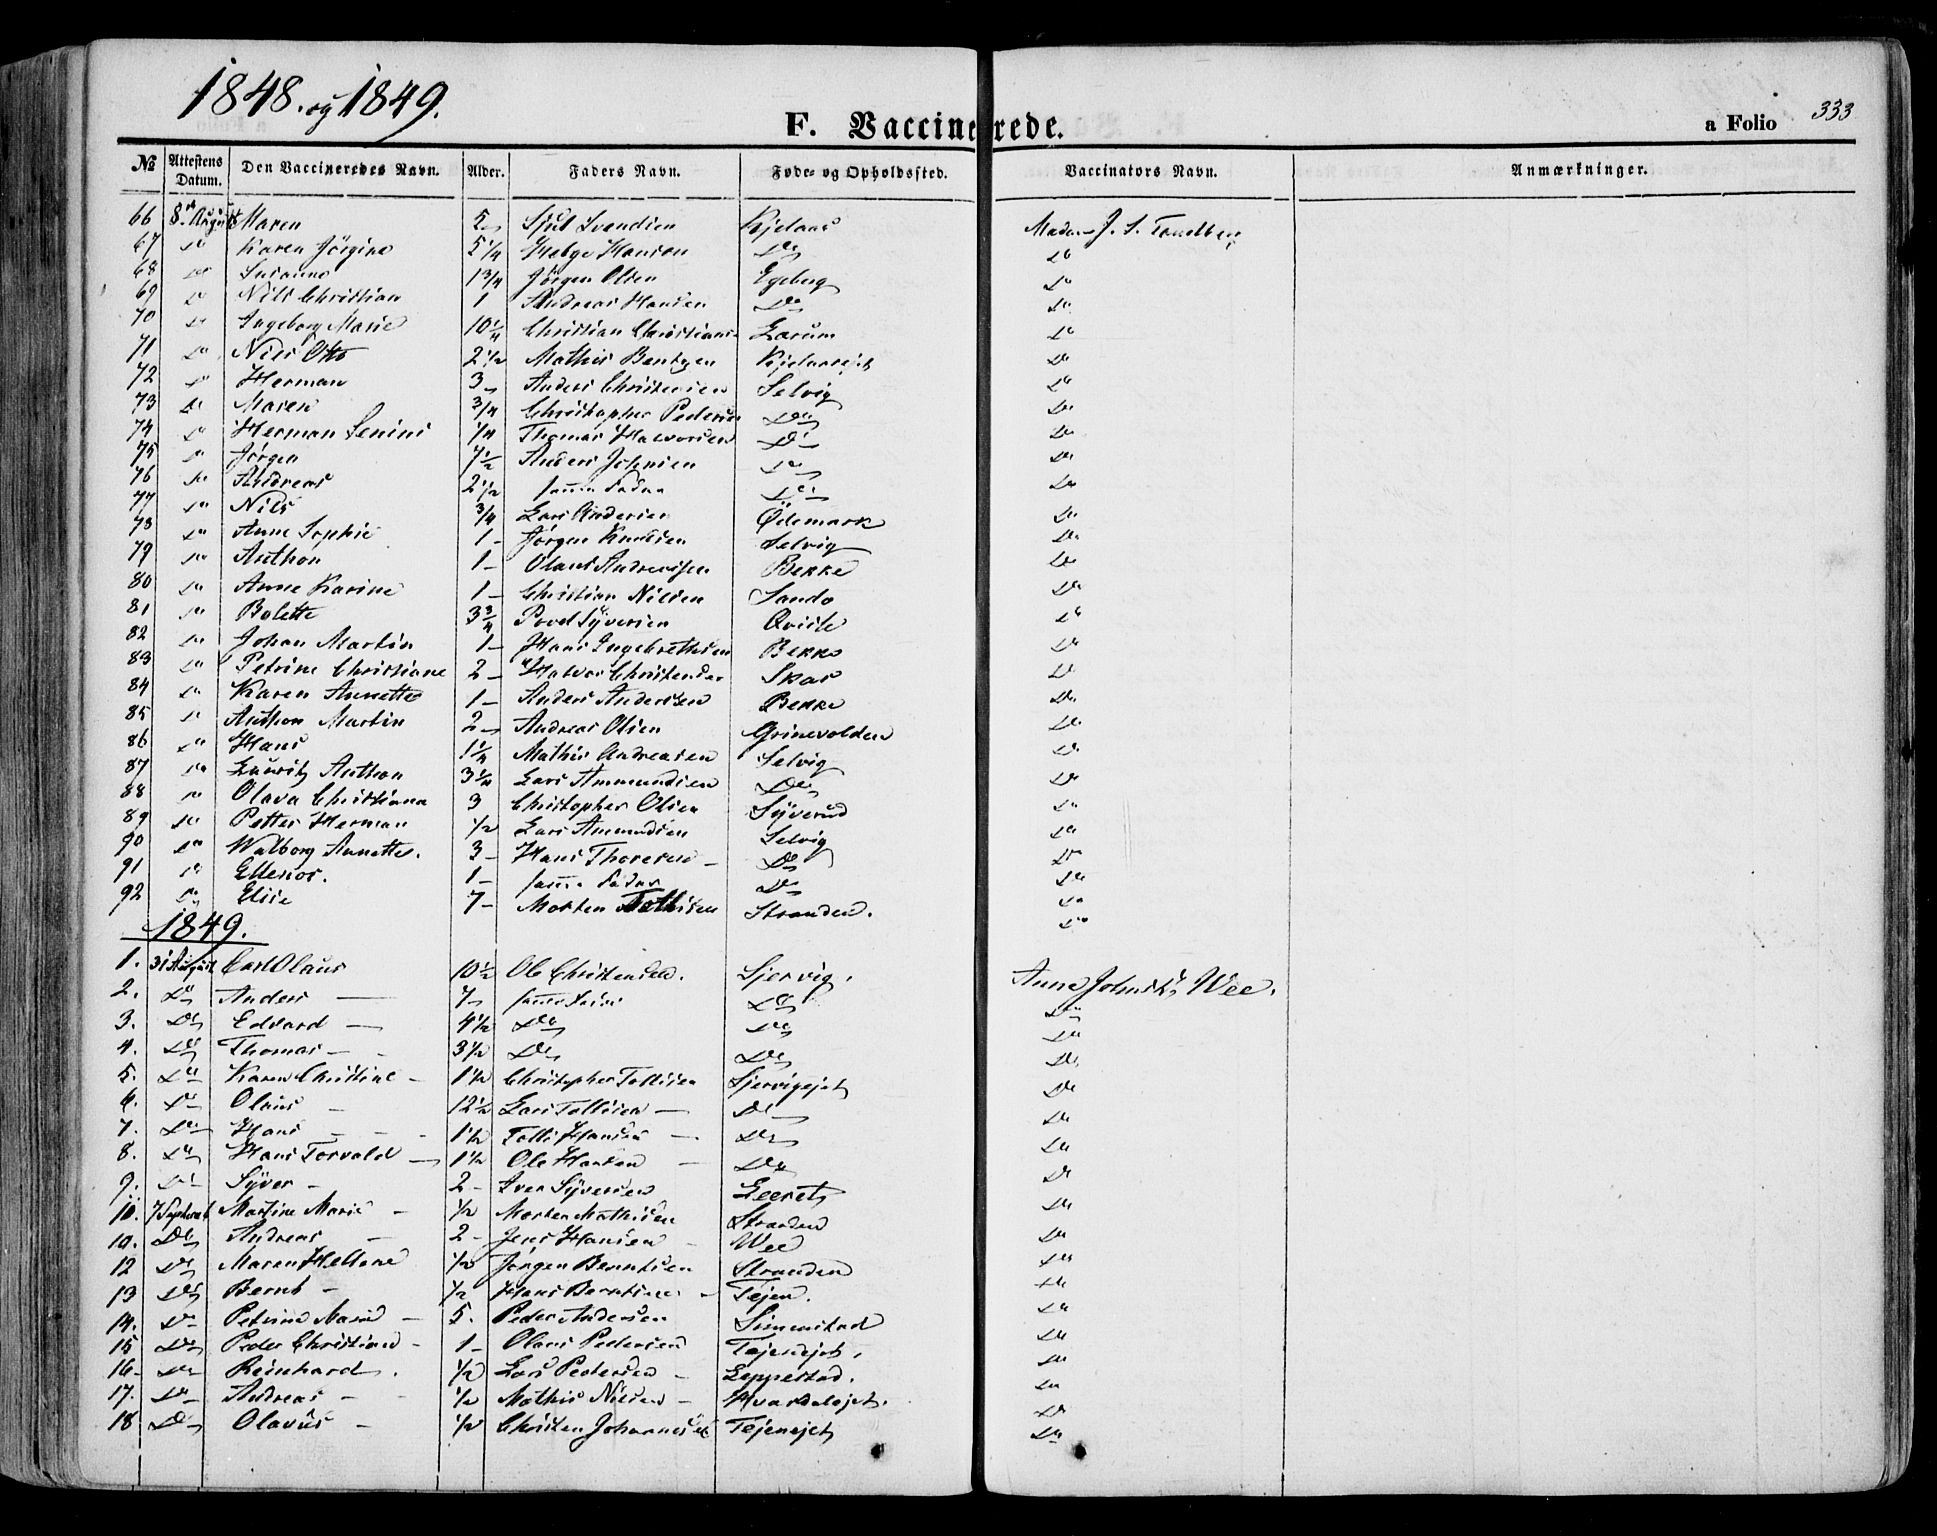 1848. og 1849.
F. Vaccinerede.
a Folio 333
№ Attestens Datum. Den Vaccineredes Navn. Alder. Faders Navn. Føde- og Opholdssted. Vaccinators Navn. Anmærkninger.
66 8de August Maren Sjul Svendsen Madm J. S.
67 Do Karen Jörgine 5 1/4 Helge Hansen Do Do
68 Do Susanne 1 3/4 Jörgen Olsen Egeberg Do
69 Do Nils Christian 1 Andreas Hansen Do Do
70 Do Ingeborg Marie 10 1/4 Christian Christians Do
71 Do Nils Otto 2 1/2 Mathis Bentzen Do
72 Do Herman 3 Anders Christensen Selvig Do
73 Do Maren 3/4 Christopher Pedersen Do Do
74 Do Herman Severins 1/4 Thomas Halvorsen Do Do
75 Do Jörgen 7 1/2 Anders Johnsen Do Do
76 Do Andreas 2 1/2 samme Fader Do Do
77 Do Nils 3/4 Lars Andersen Ödemark Do
78 Do Anne Sophie 1 - Jörgen Knudsen Selvig Do
79 Do Anthon 1 - Olaus Andreassen Bekke Do
80 Do Anne Karine 1 - Christian Nilsen Sando Do
81 Do Bolette 3 3/4 Povel Syversen Qvisle Do
82 Do Johan Martin 1 - Hans Ingebrethsen Bekke Do
83 Do Petrine Christiane 2 - Halvor Christensen Skar Do
84 Do Karen Annette 1 - Anders Andersen Bekke Do
85 Do Anthon Martin 2 - Andreas Olsen Grinevolden Do
86 Do Hans 1 1/4 Mathis Andreasen Selvig Do
87 Do Lauritz Anthon 3 1/4 Lars Ammundsen Do Do
88 Do Olava Christiana 3 Christopher Olsen Syverud Do
89 Do Petter Herman 1/2 Lars Amundsen Selvig Do
90 Do Walborg Annette. 3 - Hans Thoresen - Do Do
91 Do Ellenor. 1 - samme Fader Do Do
92 Do Elise 7 - Morten Stranden. Do
1849.
1. 31 August Carl Olaus 10 1/2 Ole Christensen. Sjervig. Anne Wee.
2. Do Anders — 7 - samme Fader Do Do
3. Do Edvard — 4 1/2 Do Do Do
4. Do Thomas - 3 1/2 Do Do Do
5. Do Karen Christine - 1 1/2 Christopher Tollisen Sjervigejet Do
6. Do Olaus - 12 1/2 Lars Tollisen — Do Do
7. Do Hans - 1 1/2 Tollis Hansen - Do Do
8. Do Hans Torvald — 1 1/2 Ole Hansen - Do Do
9. Do Syver - 2 - Iver Syversen Do
10. 7 Septemb Martine Marie - 1/2 Morten Mathisen Stranden Do
10. Do Andreas - 2 - Jens Hansen - Wee Do
12 Do Maren Hellene 1/2 Jörgen Berntsen Stranden Do
13 Do Bernt - 1/2 Hans Berntsen - Tejen. Do
14. Do Petrine Marie - 5. Peder Andersen Do
15 Do Peder Christian - 1 - Olaus Pedersen Tejenejet. Do
16- Do Reinhard. 1/2 Lars Pedersen - Leppestad. Do
17. Do Andreas - - 1/2 Mathis Nilsen - Hvardalejet. Do
18 Do Olavus - 1/2 Christen Johannesen Tejenejet Do